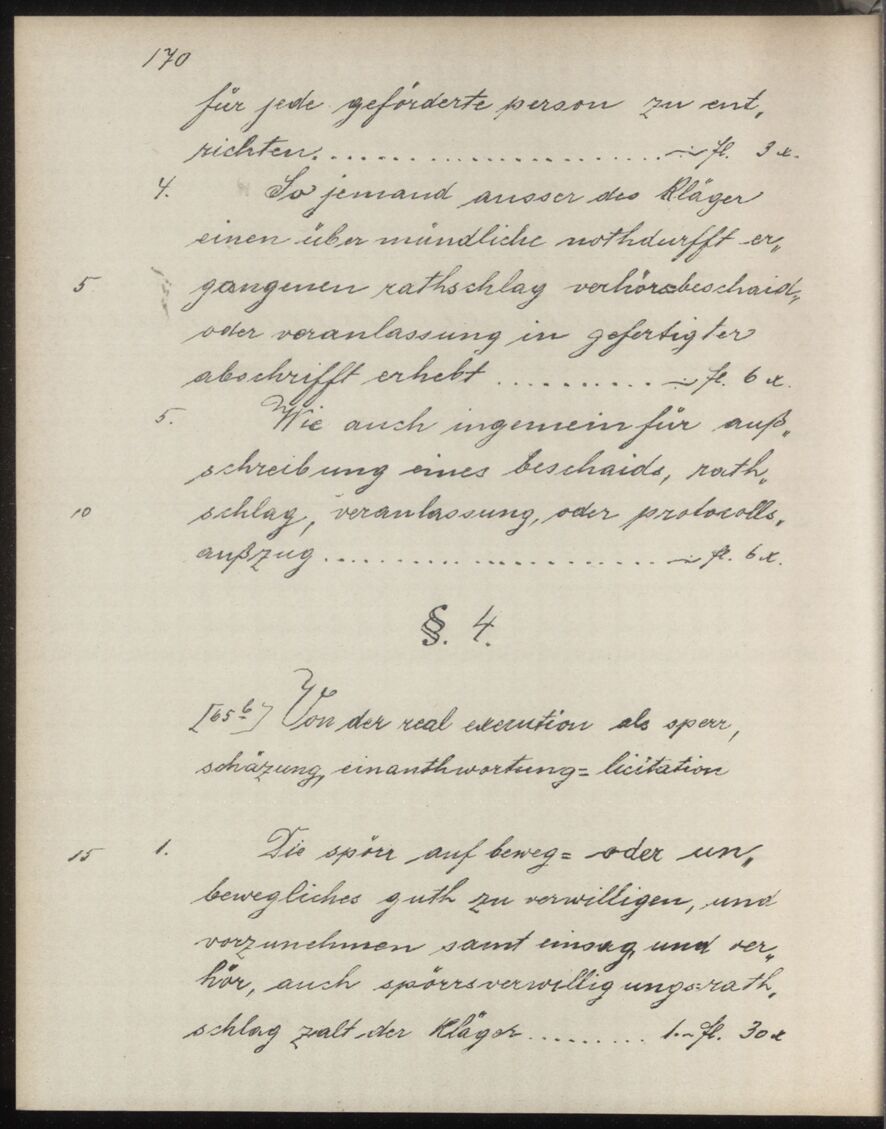 170
für jede geförderte person zu ent„
richten. . . . . . . . . . . . . . . . . . . . . . . . . –:– fl. 3 x.
4. So jemand ausser des Kläger
einen über mündliche nothdurfft er„
5 gangenen rathschlag verhörsbeschaid„
oder veranlassung in gefertigter
abschrifft erhebt . . . . . . . . . . . –:– fl. 6 x.
5. Wie auch ingemein für auß„
schreibung eines beschaids, rath„
10 schlag, veranlassung, oder protocolls„
außzug . . . . . . . . . . . . . . . . . . . . . . –:– fl. 6 x.
§. 4.
[65b] Von der real execution als sperr,
schäzung, einanthwortung= licitation
15 1. Die spörr auf beweg= oder un„
bewegliches guth zu verwilligen, und
vorzunehmen samt einsag, und ver„
hör, auch spörrsverwilligungs=rath„
schlag zalt der Kläger . . . . . . . . . 1.– fl. 30 x